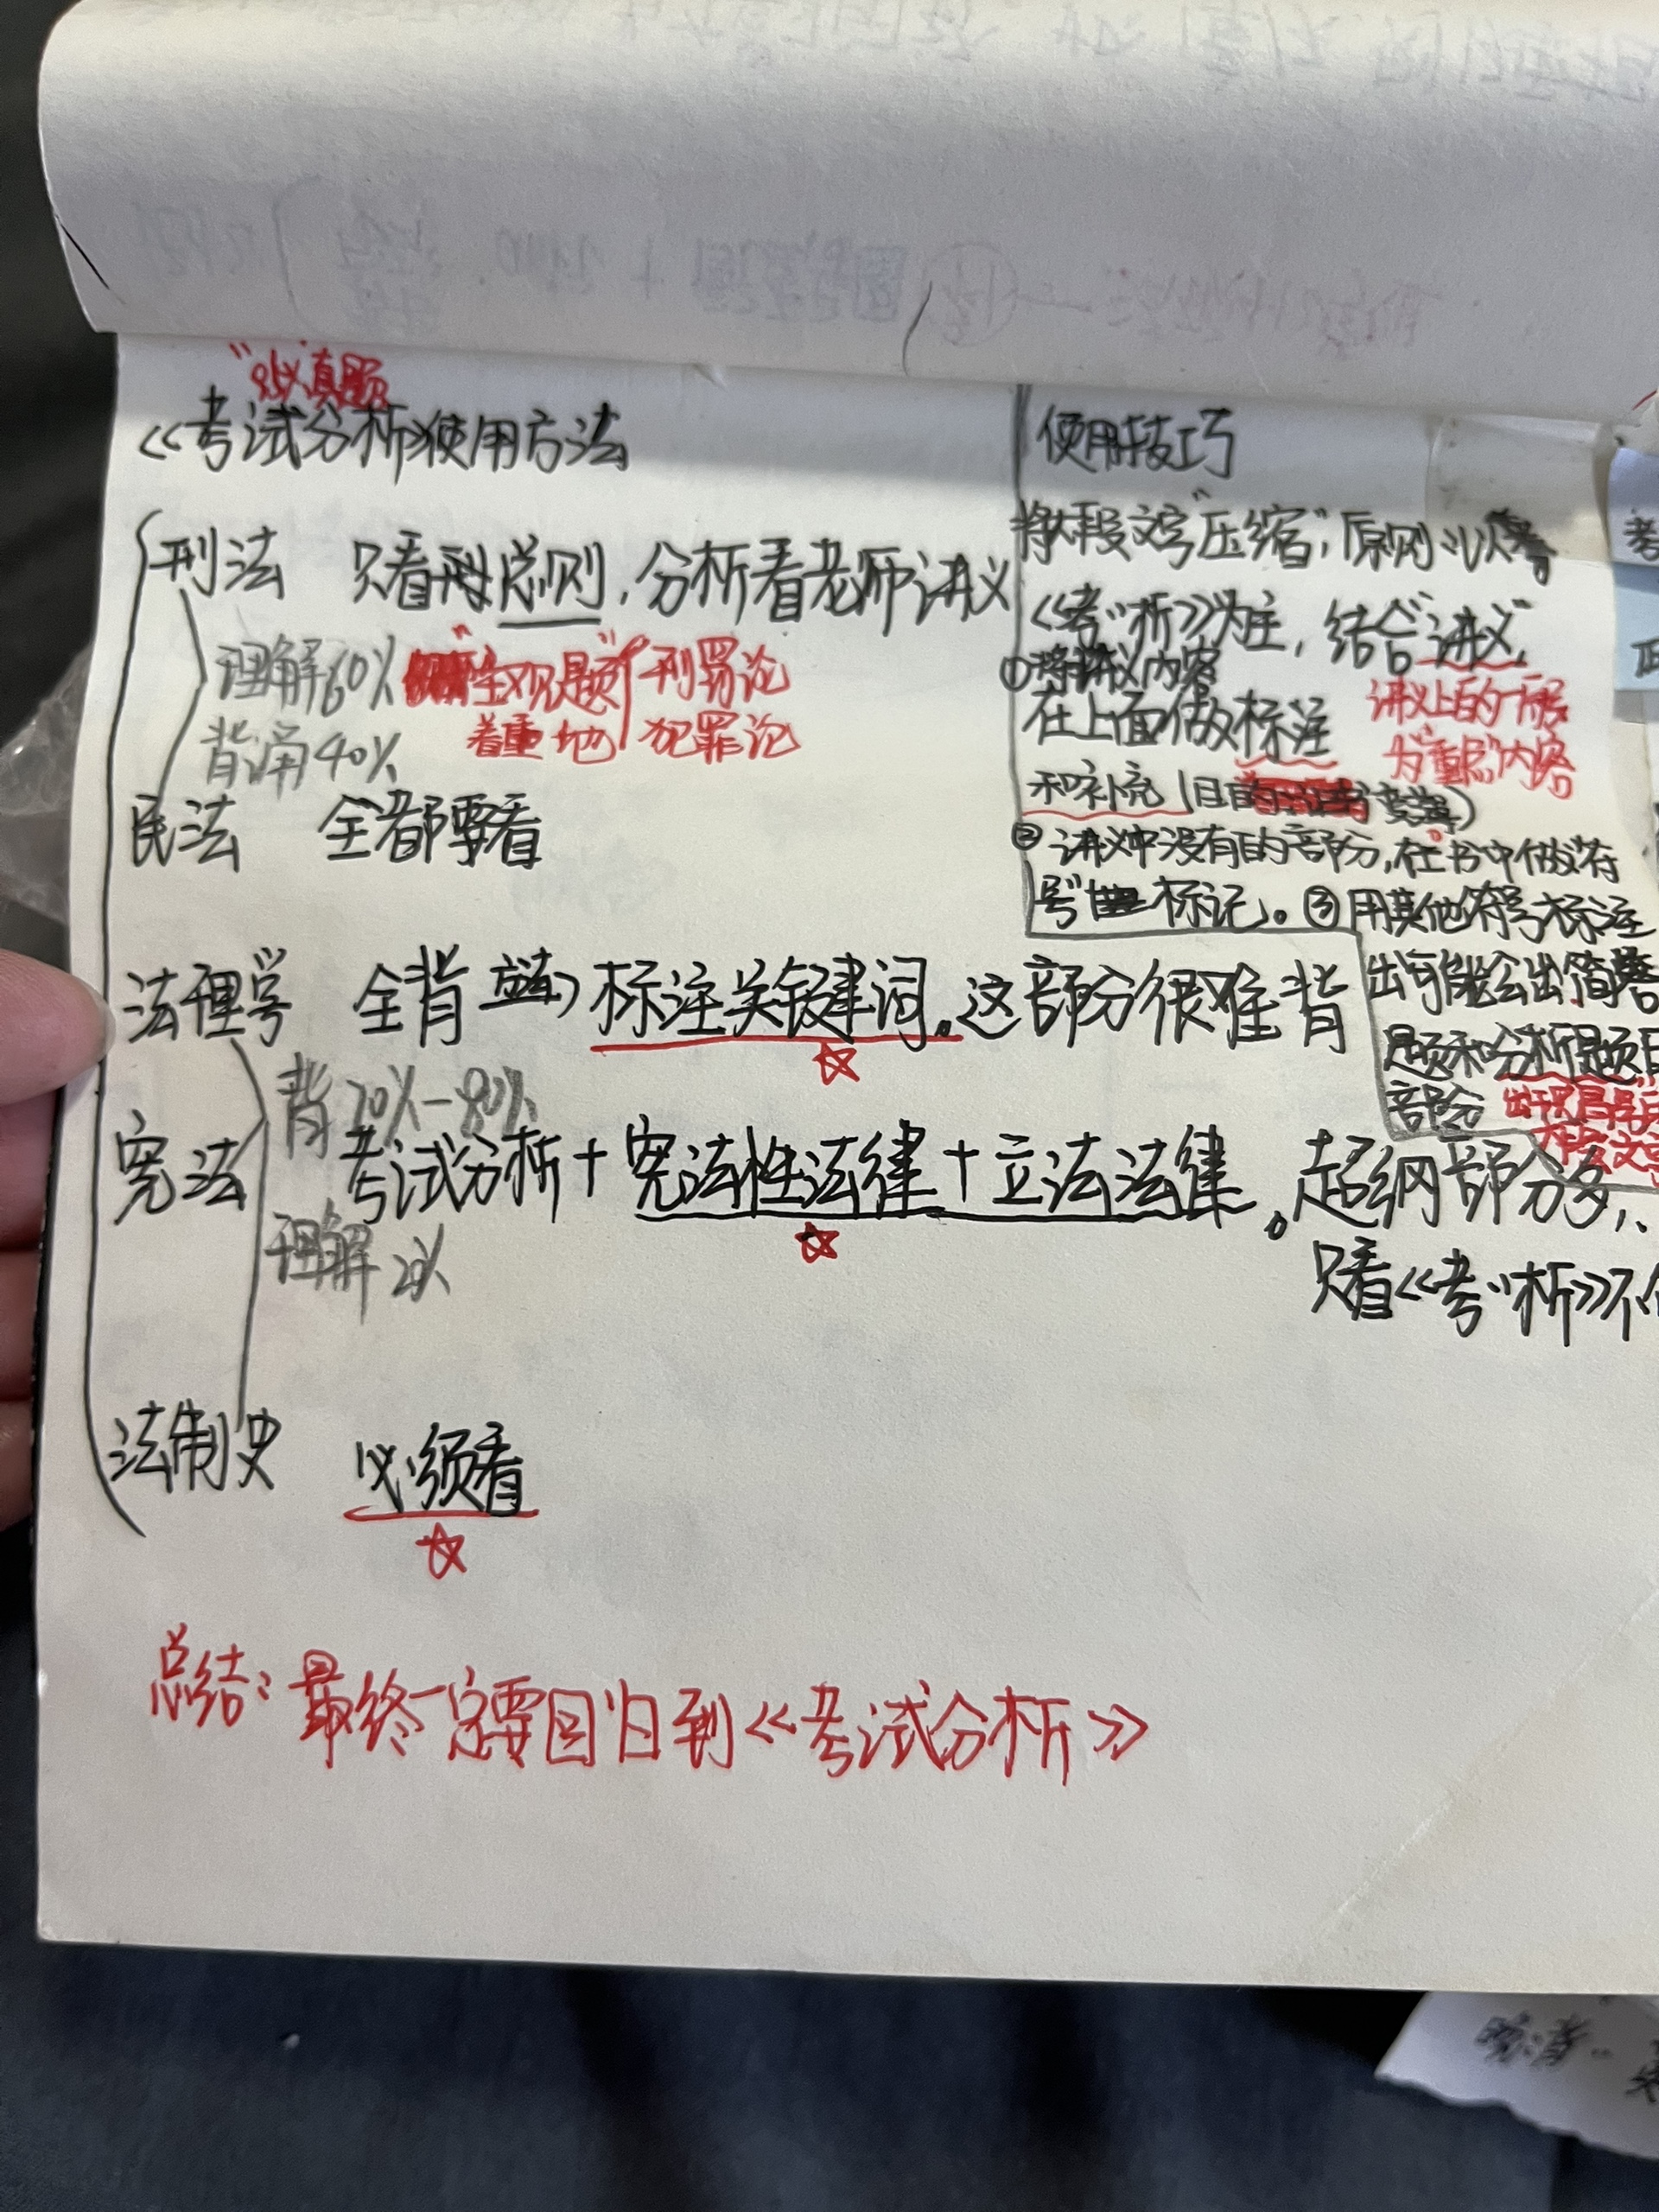 真题
《考试分析》使用方法
刑法 只看 总则，分析看老师讲义
理解60% "主观题" 刑罚论
背诵40% 着重地 犯罪论
民法 全都要看
法理学 全背 标注关键词。这部分很难背
背70%-80%
宪法 考试分析+宪法性法律+立法法律。超纲部分多，
理解20%
只看《考''析》不
法制史 必须看
总结：最终一定要回归到《考试分析》
使用技巧
将大段文字"压缩"，原则：以
《考''析》为主，结合"讲义"
①将讲义内容
在上面做标注
讲义上的内容
为"重点"内容
和补充
②讲义中没有的部分，在书中做"符
号" 标记。③用其他符号标注
出可能会出简答
题和分析题目
部分